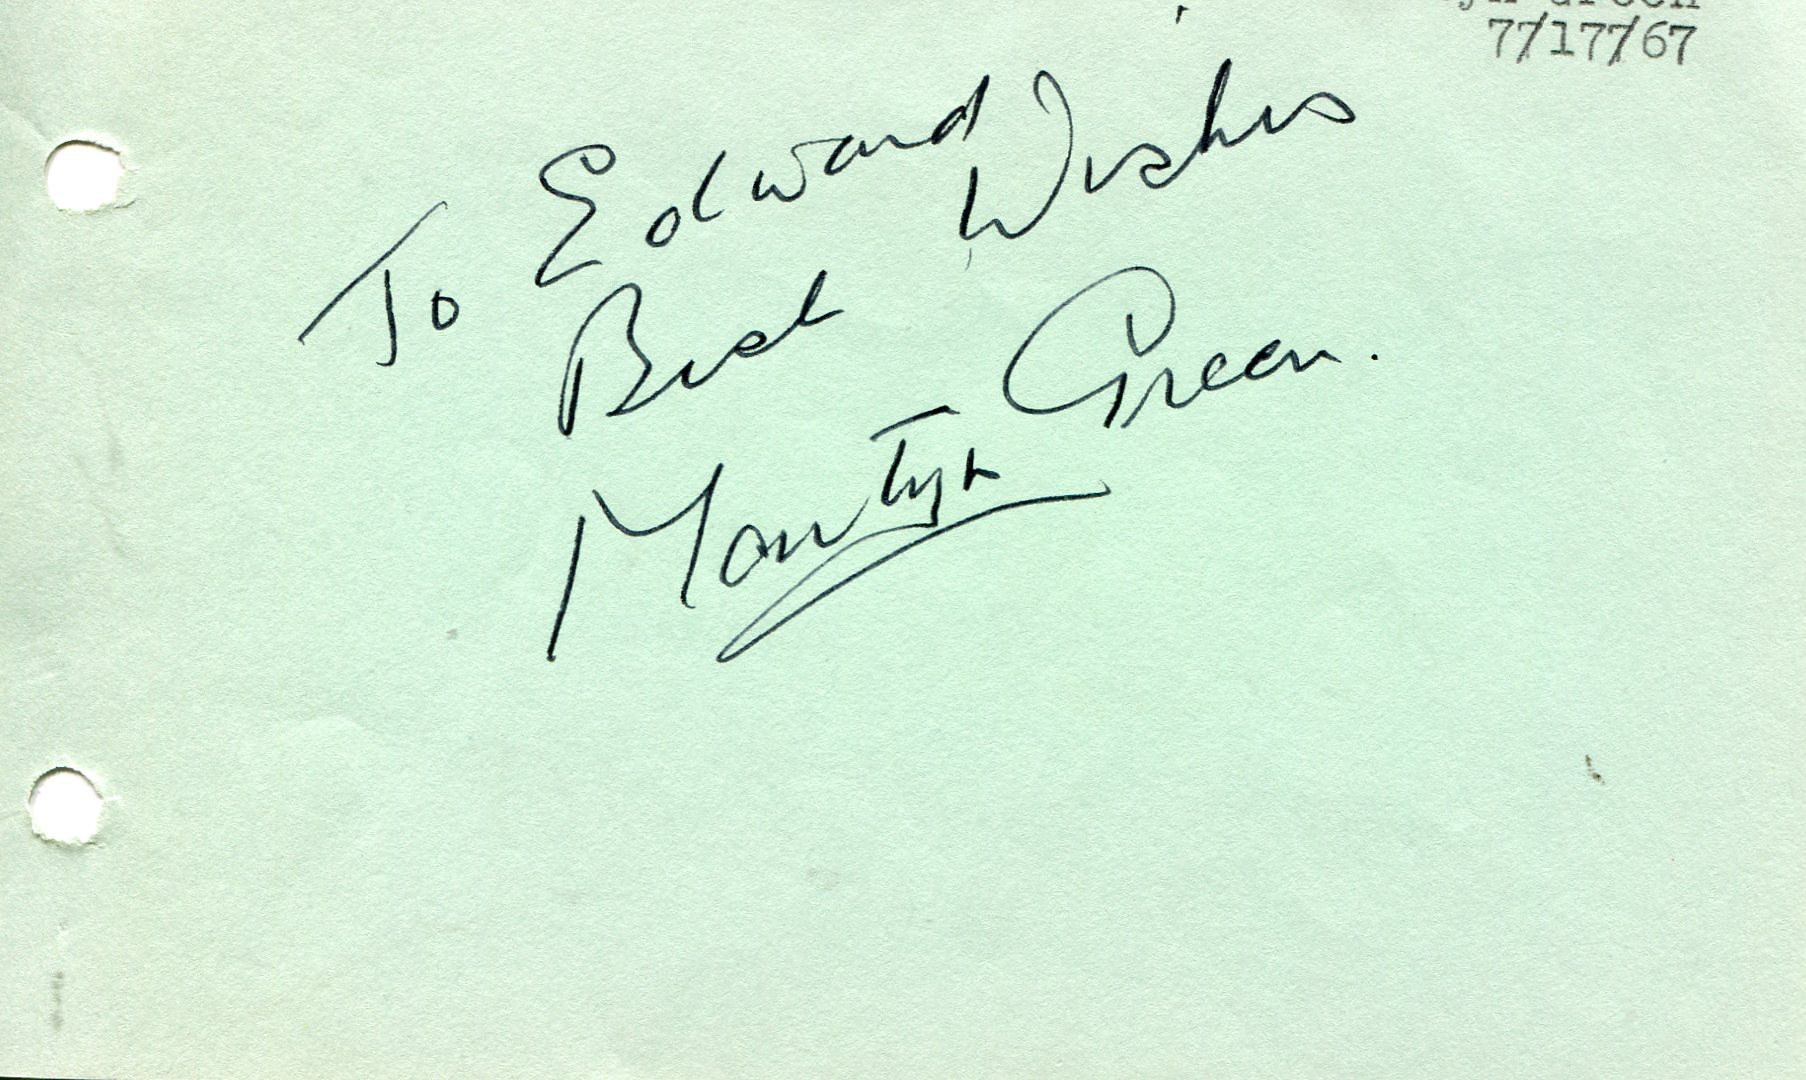 Green
7/17/67
To Edward
Best Wishes
Martyn Green.